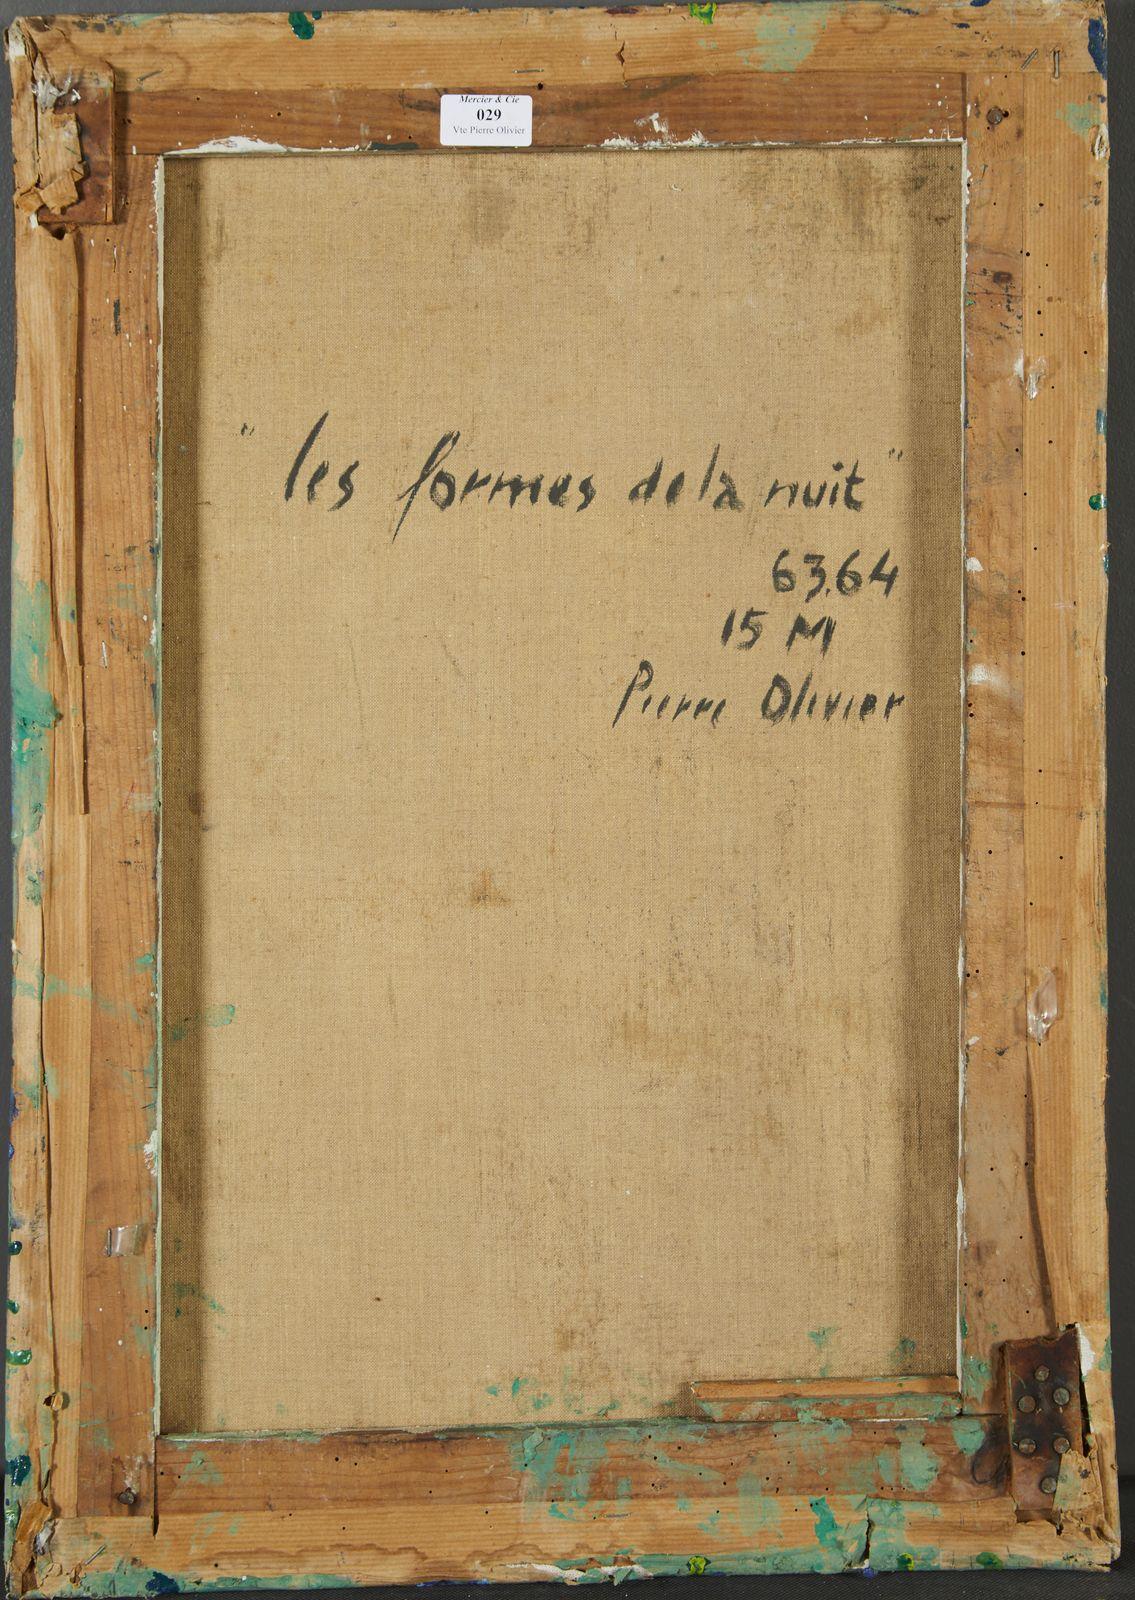 Mercier & Cie
029
Vte Pierre Olivier
"les formes de la nuit"
63.64
15 M
Pierre Olivier